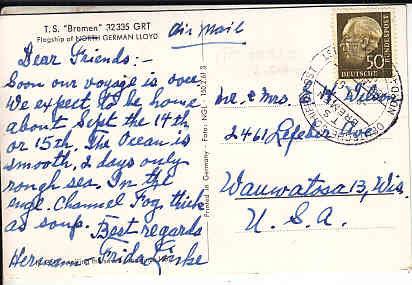 T. S. "Bremen" 32335 GRT
Flagship of NORTH GERMAN LLOYD
Air Mail
Dear Friends:-
Soon our voyage is over
We expect to be home
about Sept the 14th
or 15th. The Ocean is
smooth, 2 days only
rough sea. In the
engl. Channel Fog thick
as soup. Best regards
Herman Frida Linke
Printed in Germany - Foto: NGL - 150 2 61 3
DEUTSCHE
BUNDESPOST
50
Mr. & Mrs. H Wilson
2461 Lefeber Ave
Wauwatosa 13, Wis.
U. S. A.